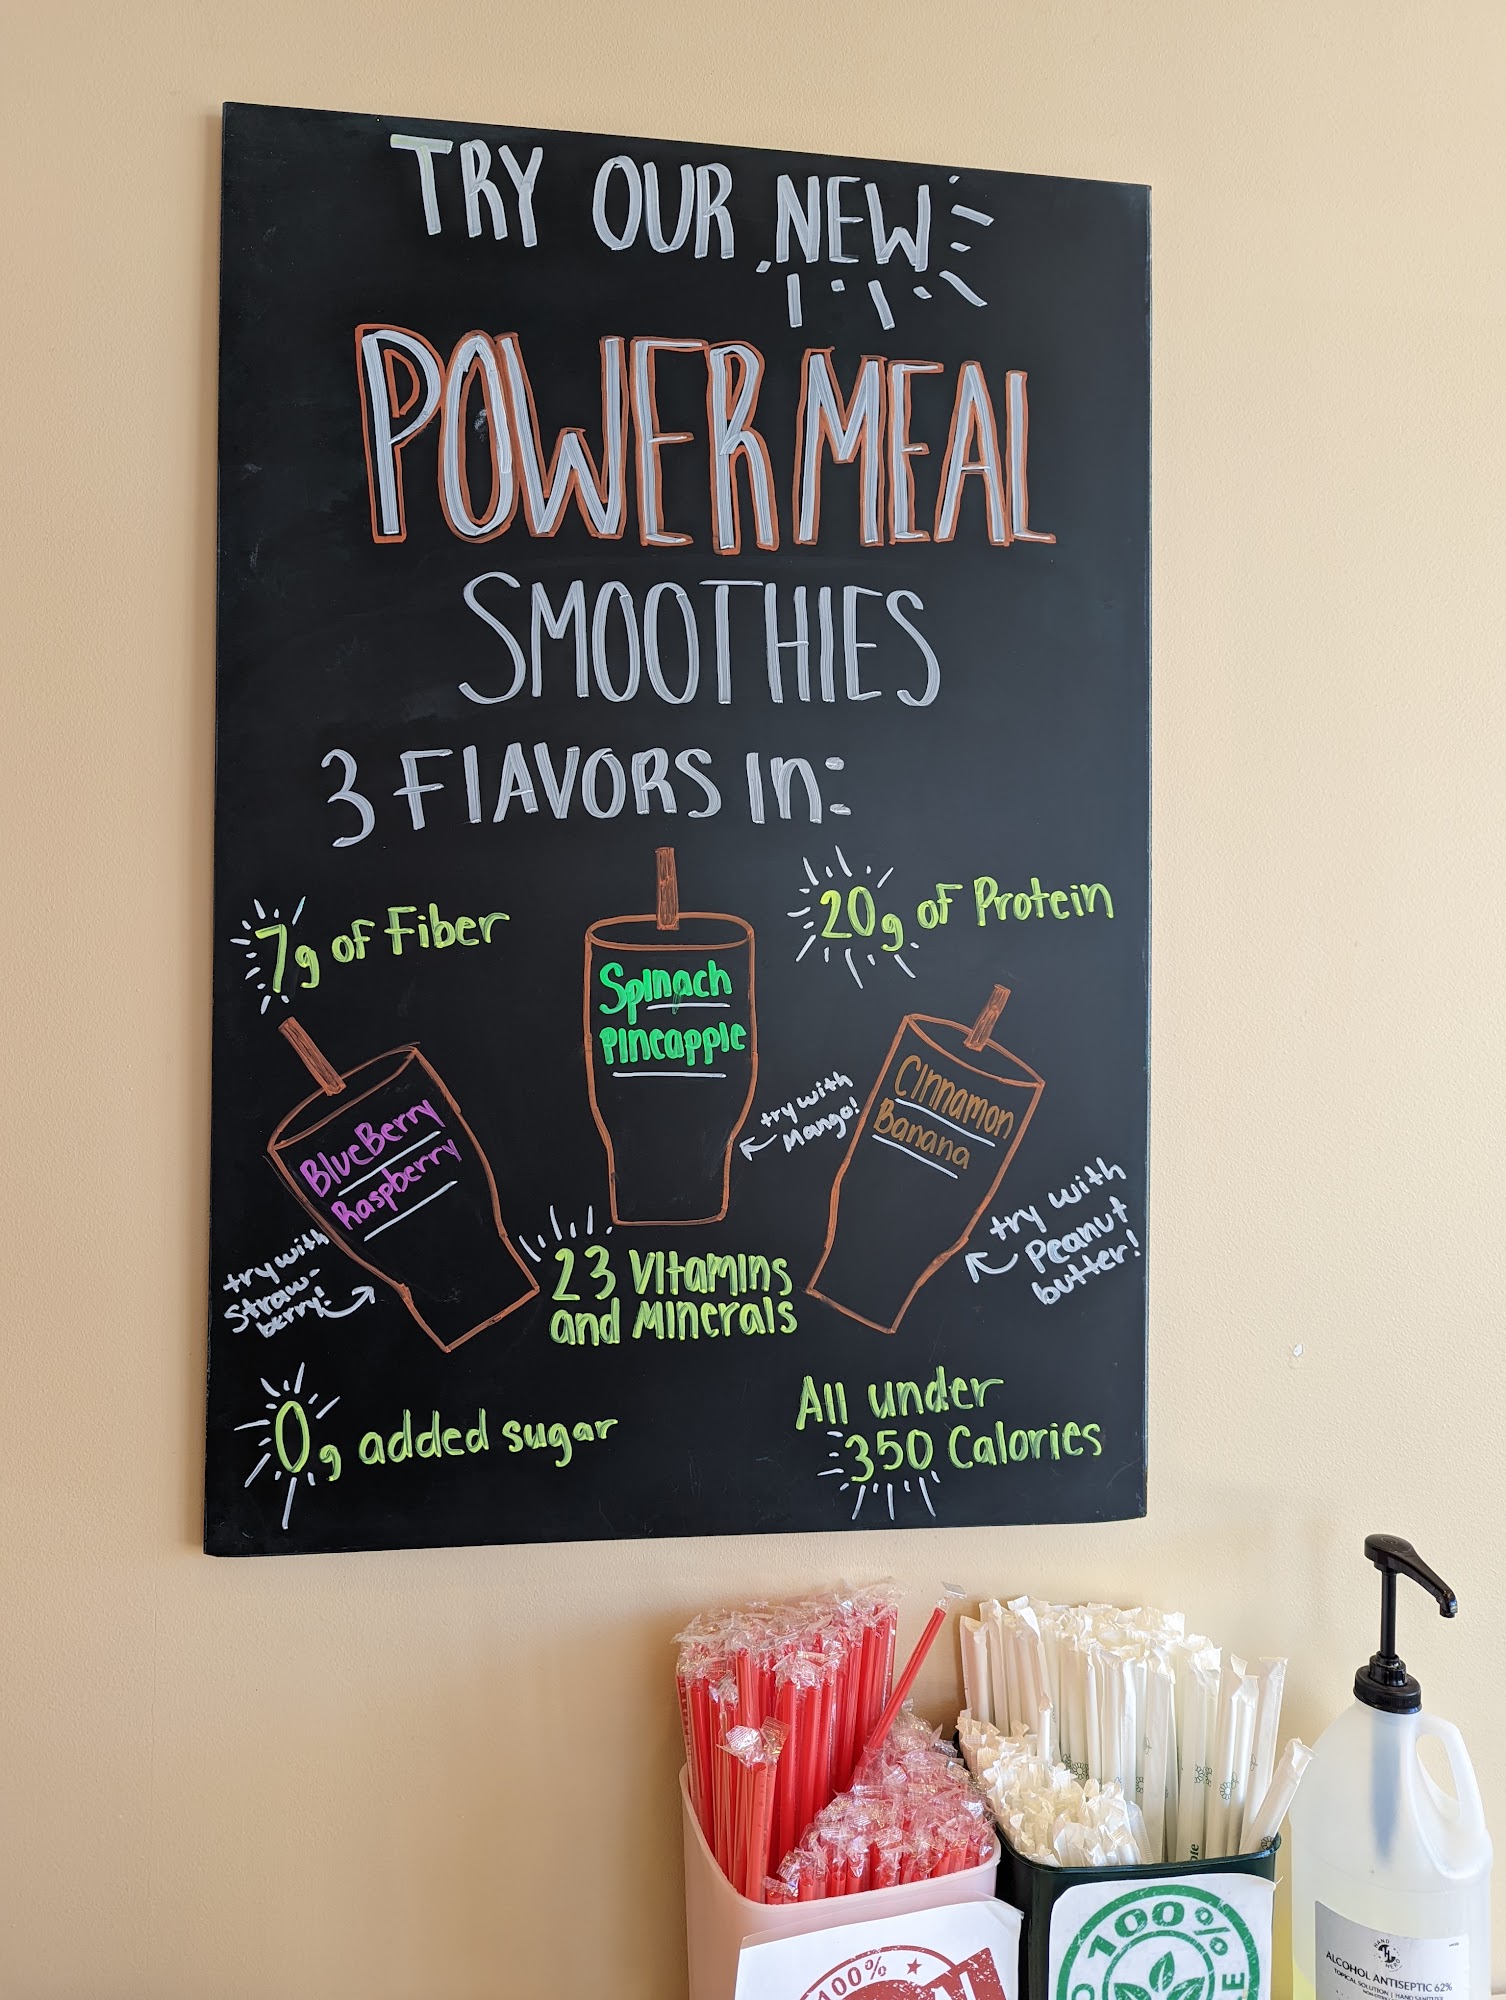 TRY OUR NEW
POWER MEAL
SMOOTHIES
3 FlAVORS In:
7g of Fiber
20g of Protein
Spinach
Pineapple
BlueBerry
Raspberry
Cinnamon
Banana
try with
Mango!
try with
Straw-
berry!
try with
Peanut
butter!
23 Vitamins
and Minerals
0g added sugar
All under
350 Calories
100%
100%
HAND
HERO
ALCOHOL ANTISEPTIC 62%
TOPICAL SOLUTION | HAND SANITIZER